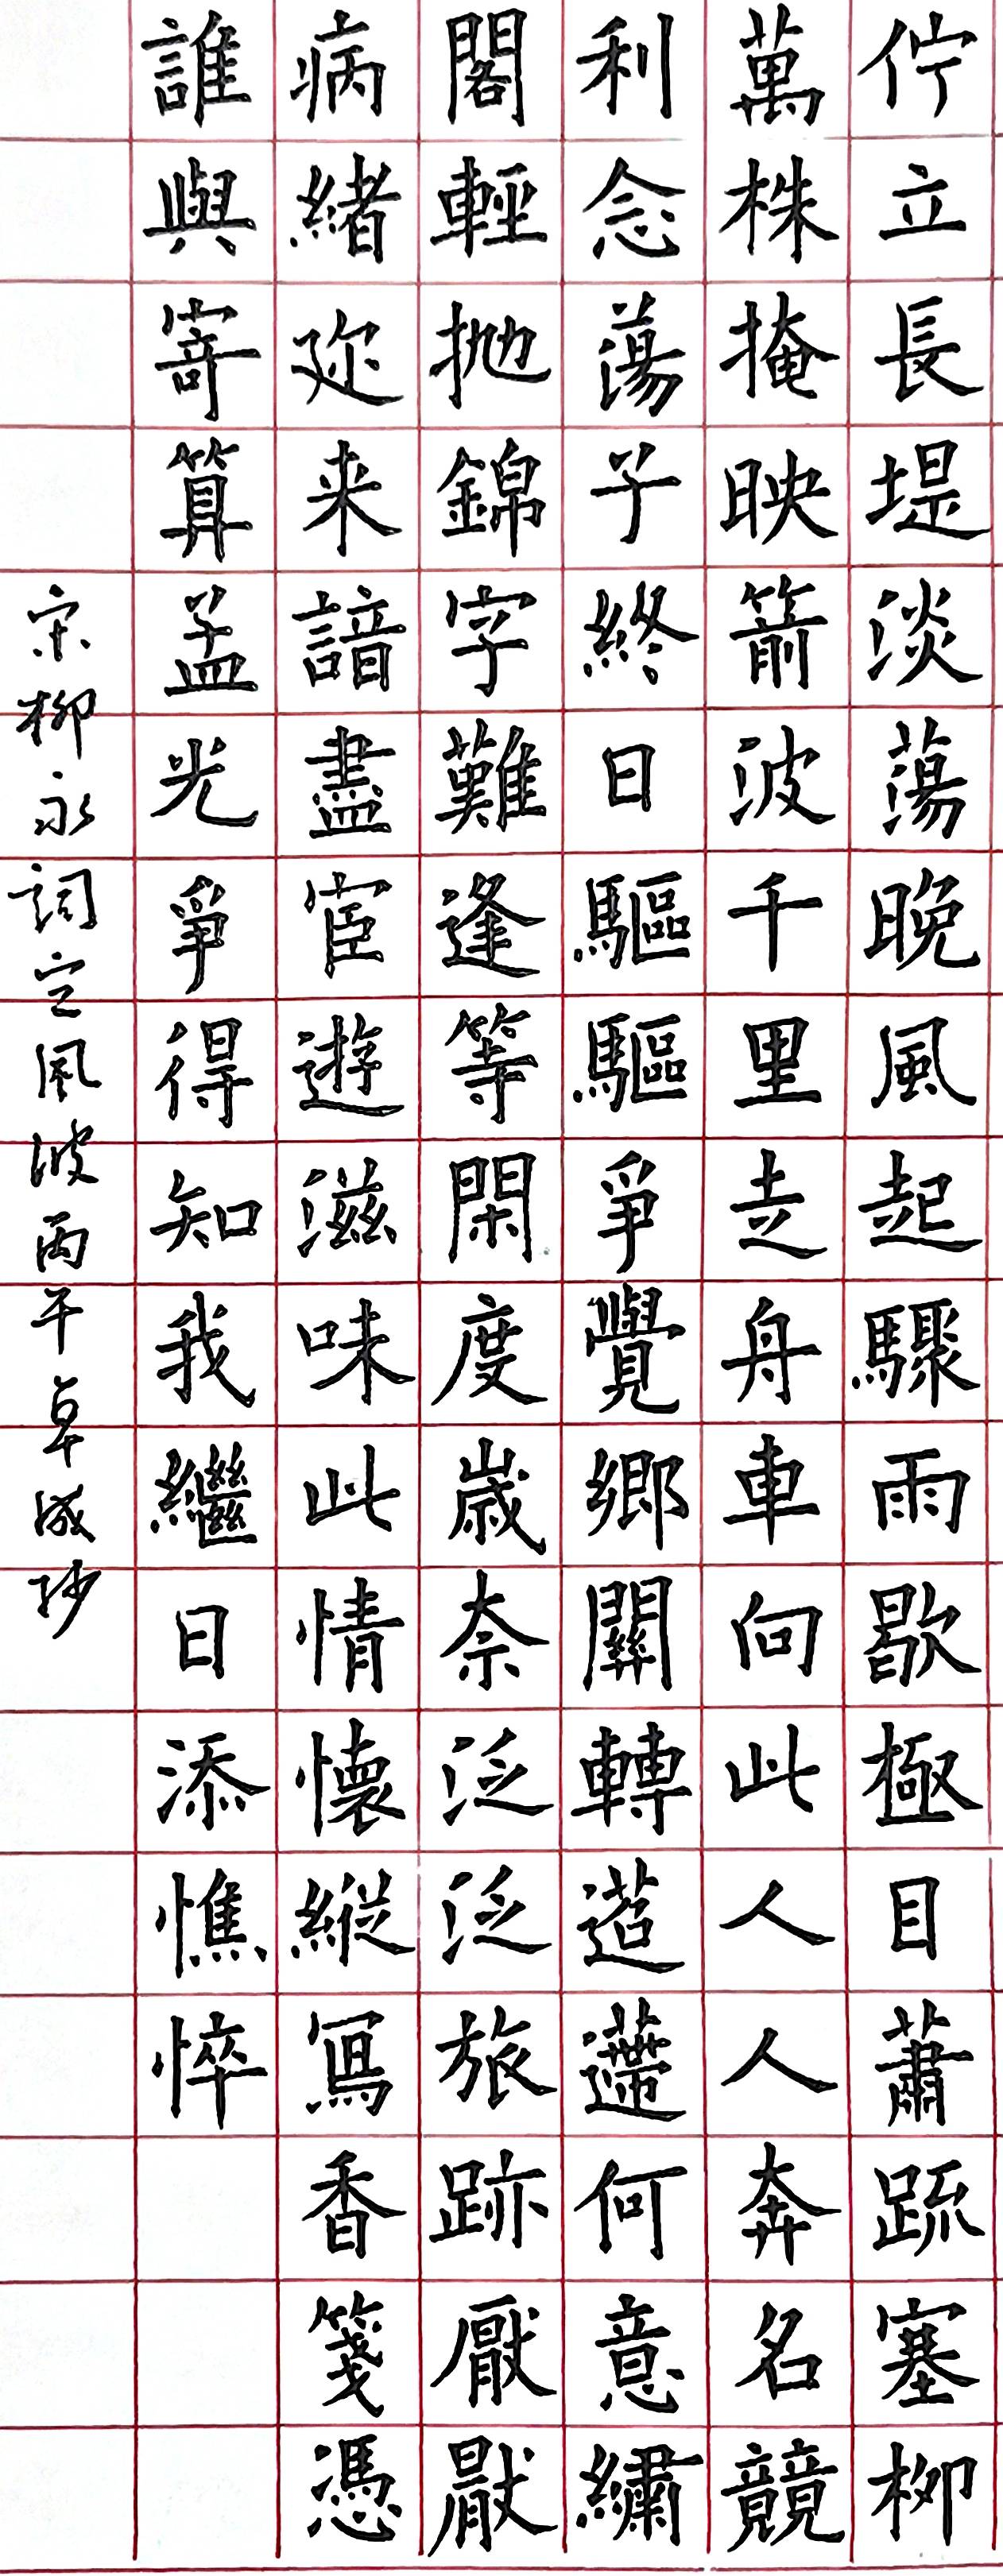 佇立長堤淡蕩晚風起驟雨歇極目蕭疏塞柳
萬株掩映箭波千里走舟車向此人人奔名競
利念蕩子終日驅驅爭覺鄉關轉迢遞何意繡
閣輕拋錦字難逢等閑度歲奈泛泛旅跡厭厭
病緒迩来諳盡宦遊滋味此情懷縱寫香箋憑
誰與寄算孟光爭得知我繼日添憔悴
宋柳永詞定風波丙午卓成抄